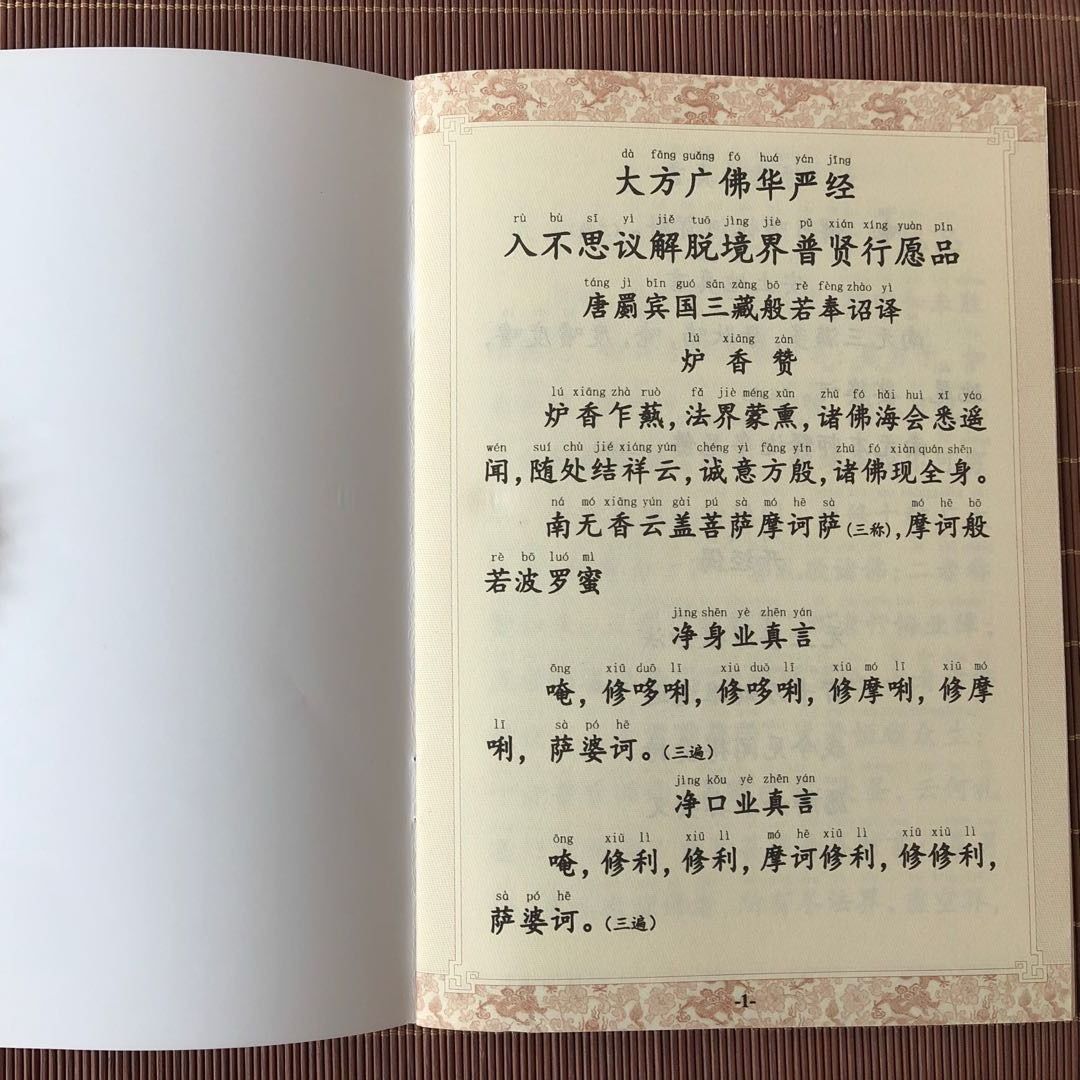 dà fāng guǎng fó huá yán jīng
大方广佛华严经
rù bù sī yì jiě tuō jìng jiè pǔ xián xíng yuàn pǐn
入不思议解脱境界普贤行愿品
táng jì bīn guó sān zàng bō rě fèng zhào yì
唐罽宾国三藏般若奉诏译
lú xiāng zàn
炉香赞
lú xiāng zhà ruò fǎ jiè méng xūn zhū fó hǎi huì xī yáo
炉香乍爇,法界蒙熏,诸佛海会悉遥
wén suí chù jié xiáng yún chéng yì fāng yīn zhū fó xiàn quán shēn
闻,随处结祥云,诚意方殷,诸佛现全身。
ná mó xiāng yún gài pú sà mó hē sà mó hē bō
南无香云盖菩萨摩诃萨(三称),摩诃般
rě bō luó mì
若波罗蜜
jìng shēn yè zhēn yán
净身业真言
ōng xiū duō lī xiū duō lī xiū mó lī xiū mó
唵,修哆唎,修哆唎,修摩唎,修摩
lī sà pó hē
唎,萨婆诃。(三遍)
jìng kǒu yè zhēn yán
净口业真言
ōng xiū lì xiū lì mó hē xiū lì xiū xiū lì
唵,修利,修利,摩诃修利,修修利,
sà pó hē
萨婆诃。(三遍)
-1-